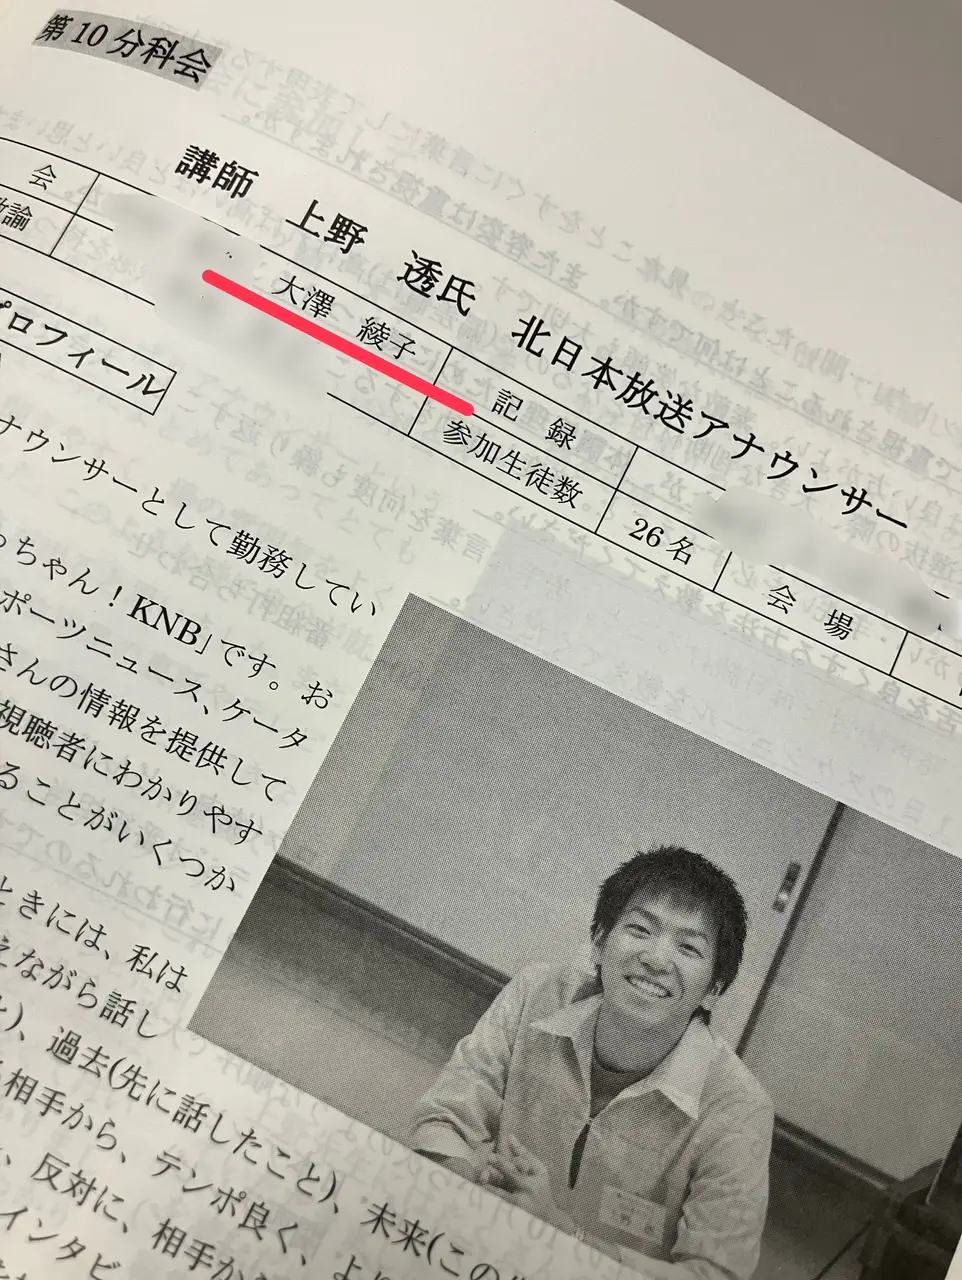 第10分科会
講師 上野 透氏 北日本放送アナウンサー
会
教諭
大澤 綾子
記録
参加生徒数
26名
会場
プロフィール
ナウンサーとして勤務してい
っちゃん！KNB」です。お
ポーツニュース、ケータ
さんの情報を提供して
視聴者にわかりやす
ることがいくつか
ときには、私は
えながら話し
と)、過去(先に話したこと)、未来(この
相手から、テンポ良く、より
、反対に、相手か
インタビ